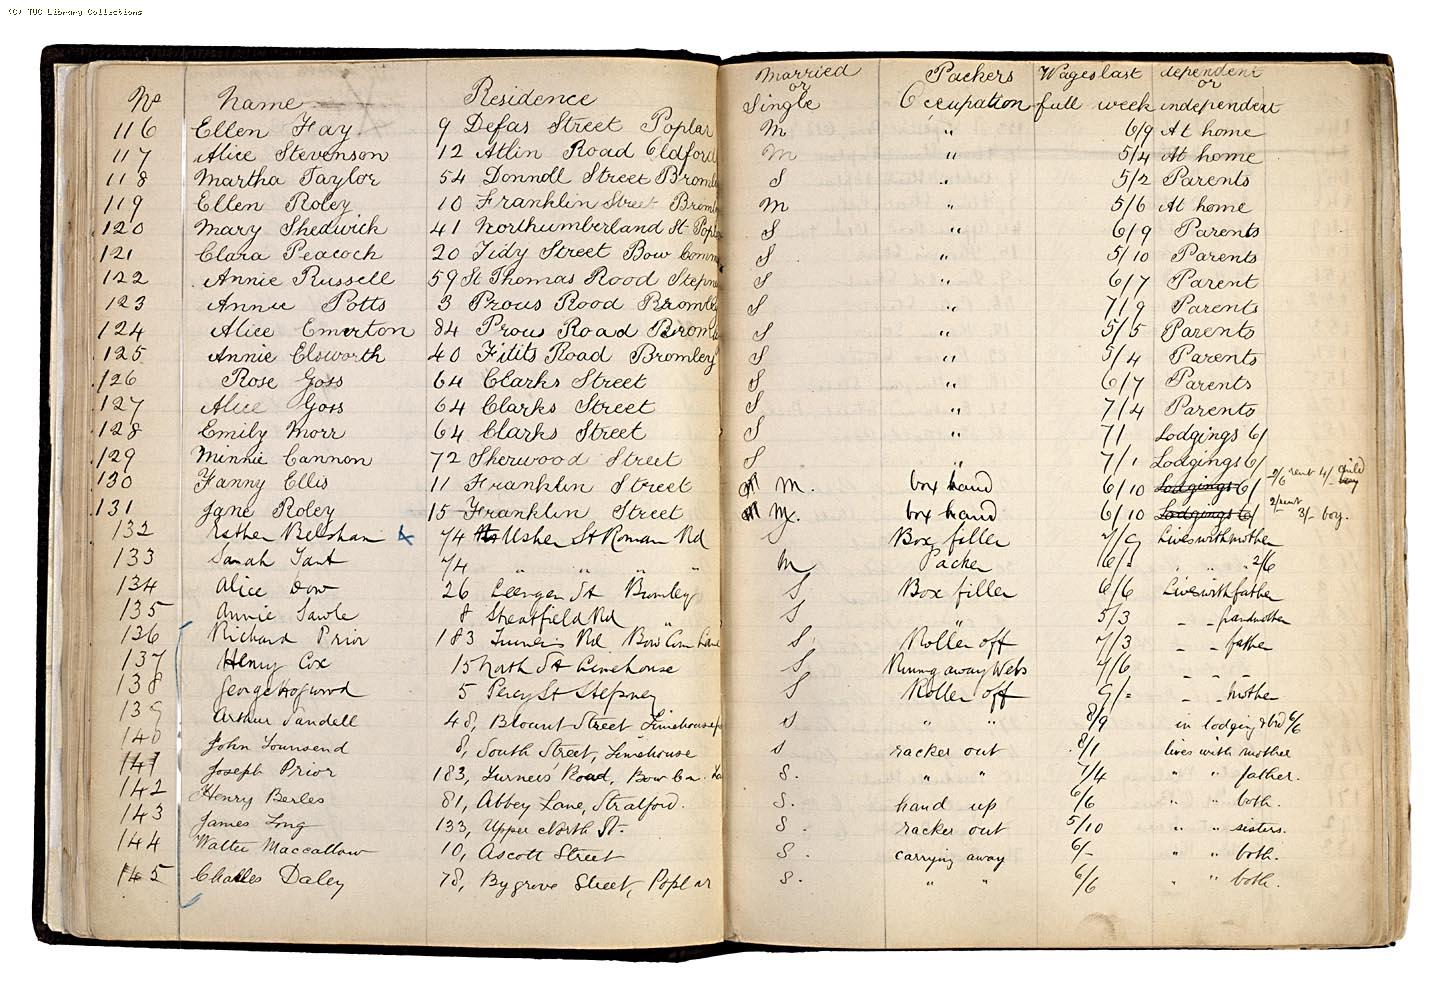 (C) TUC Library Collections
No Name Residence Married or Single Packers Occupation Wages last full week dependent or independent
116 Ellen Fay 9 Defas Street Poplar M " 6/9 At home
117 Alice Stevenson 12 Atlin Road Oldford M " 5/4 At home
118 Martha Taylor 54 Donnoll Street Bromley S " 5/2 Parents
119 Ellen Roley 10 Franklin Street Brom M " 5/6 At home
120 Mary Shedwick 41 Northumberland St Poplar S " 6/9 Parents
121 Clara Peacock 20 Tidy Street Bow Comm S " 5/10 Parents
122 Annie Russell 59 St Thomas Rood Stepn S " 6/7 Parent
123 Annie Potts 3 Prous Rood Bromley S " 7/9 Parents
124 Alice Emerton 84 Prous Road Brom S " 5/5 Parents
125 Annie Elsworth 40 Road Bromley S " 5/4 Parents
126 Rose Goss 64 Clarks Street S " 6/7 Parents
127 Alice Goss 64 Clarks Street S " 7/4 Parents
128 Emily Morr 64 Clarks Street S " 7/ Lodgings 6/
129 Minnie Cannon 72 Sherwood Street S " 7/1 Lodgings 6/
130 Fanny Ellis 11 Franklin Street M. box hand 6/10 Lodgings 6/ 2/6 rent 4/- child
131 Jane Roley 15 Franklin Street M. box hand 6/10 Lodgings 6/ 2/ rent 3/- boy.
132 Esther 74 Usher St Roman Rd S Box filler 7/9 Lives with mother
133 Sarah 74 " " " M Packer 6/- " " " 2/6
134 Alice Dow 26 St Bromley S Box filler 6/6 Lives with father
135 Annie 8 Streatfield Rd S " 5/3 " " grandmother
136 Richard Prior 183 Turners Rd Bow Com Lane S. Roller off 7/3 " " father
137 Henry Cox 15 North St Limehouse S Runng away Webs 7/6 " " "
138 George Hogwood 5 Percy St Stepney S Roller off 9/- mother
139 Arthur Sandell 48, Blount Street Limehouse S " " 8/9 in lodging & brd 6/6
140 John Townsend 8, South Street, Limehouse S racker out 8/1 lives with mother
141 Joseph Prior 183, Turners' Road, Bow Cn. S. " " 7/4 " " father.
142 Henry Berles 81, Abbey Lane, Stratford. S. hand up 6/6 " " both.
143 James Long 133, Upper North St. S. racker out 5/10 " " sisters.
144 Walter Maccallow 10, Ascott Street S. carrying away 6/- " " both.
145 Charles Daley 78, Bygrove Street, Poplar S. " " 6/6 " " both.